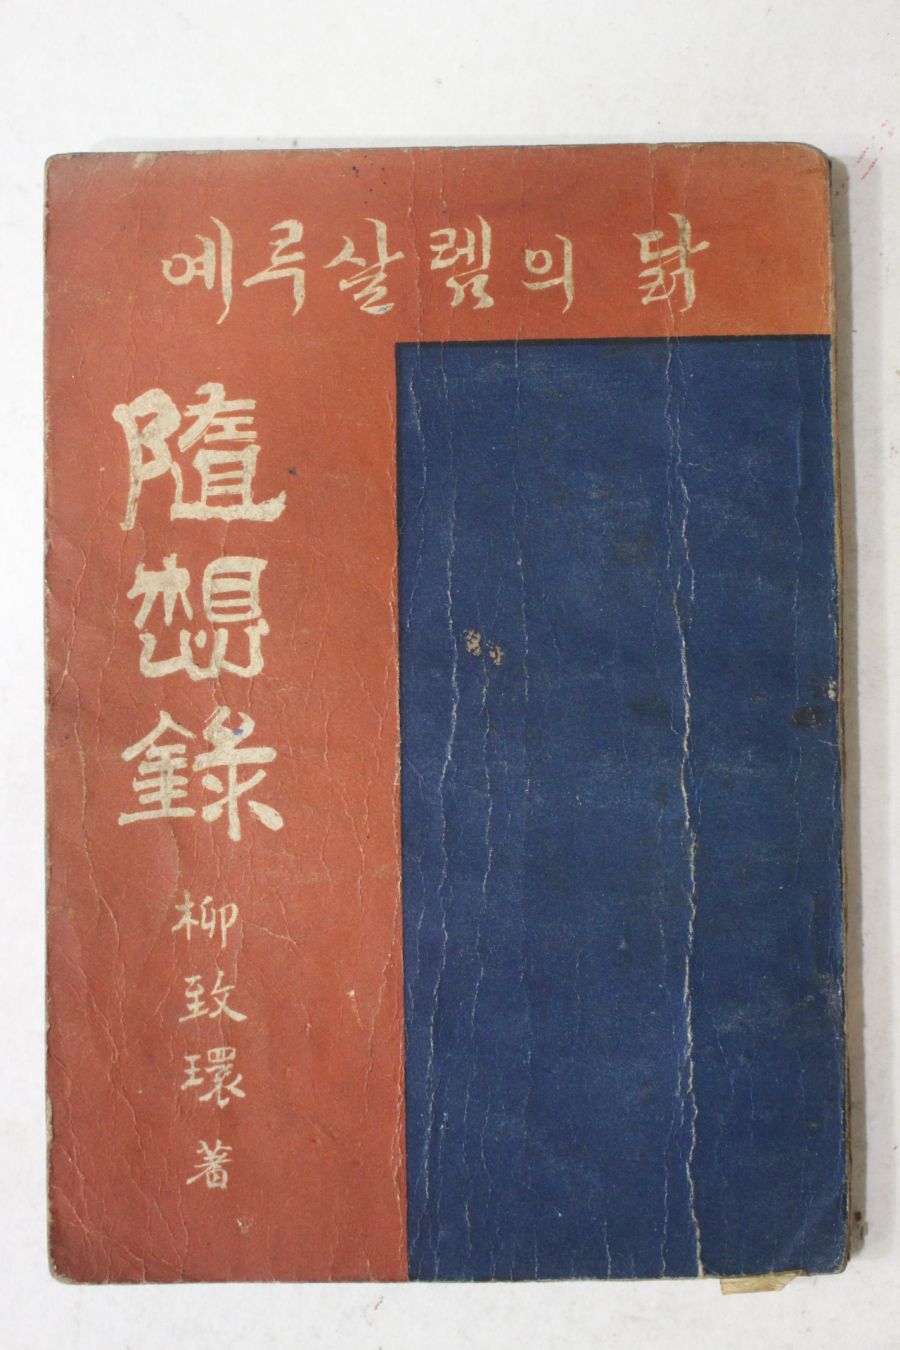 예루살렘의 닭
隨想錄
柳致環著